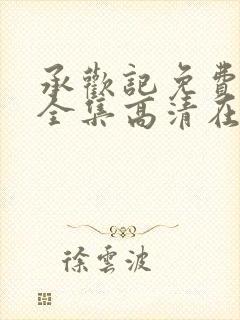 承歡記免費
全集高清在
徐雲波